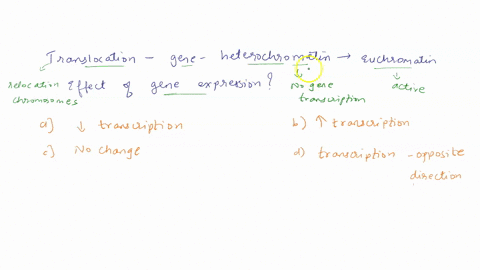 Translocation - gene - heterochromatin → euchromatin
relocation chromosomes
Effect of gene expression?
No gene transcription
active
a] ↓ transcription
b) ↑ transcription
c] No change
d) transcription - opposite direction